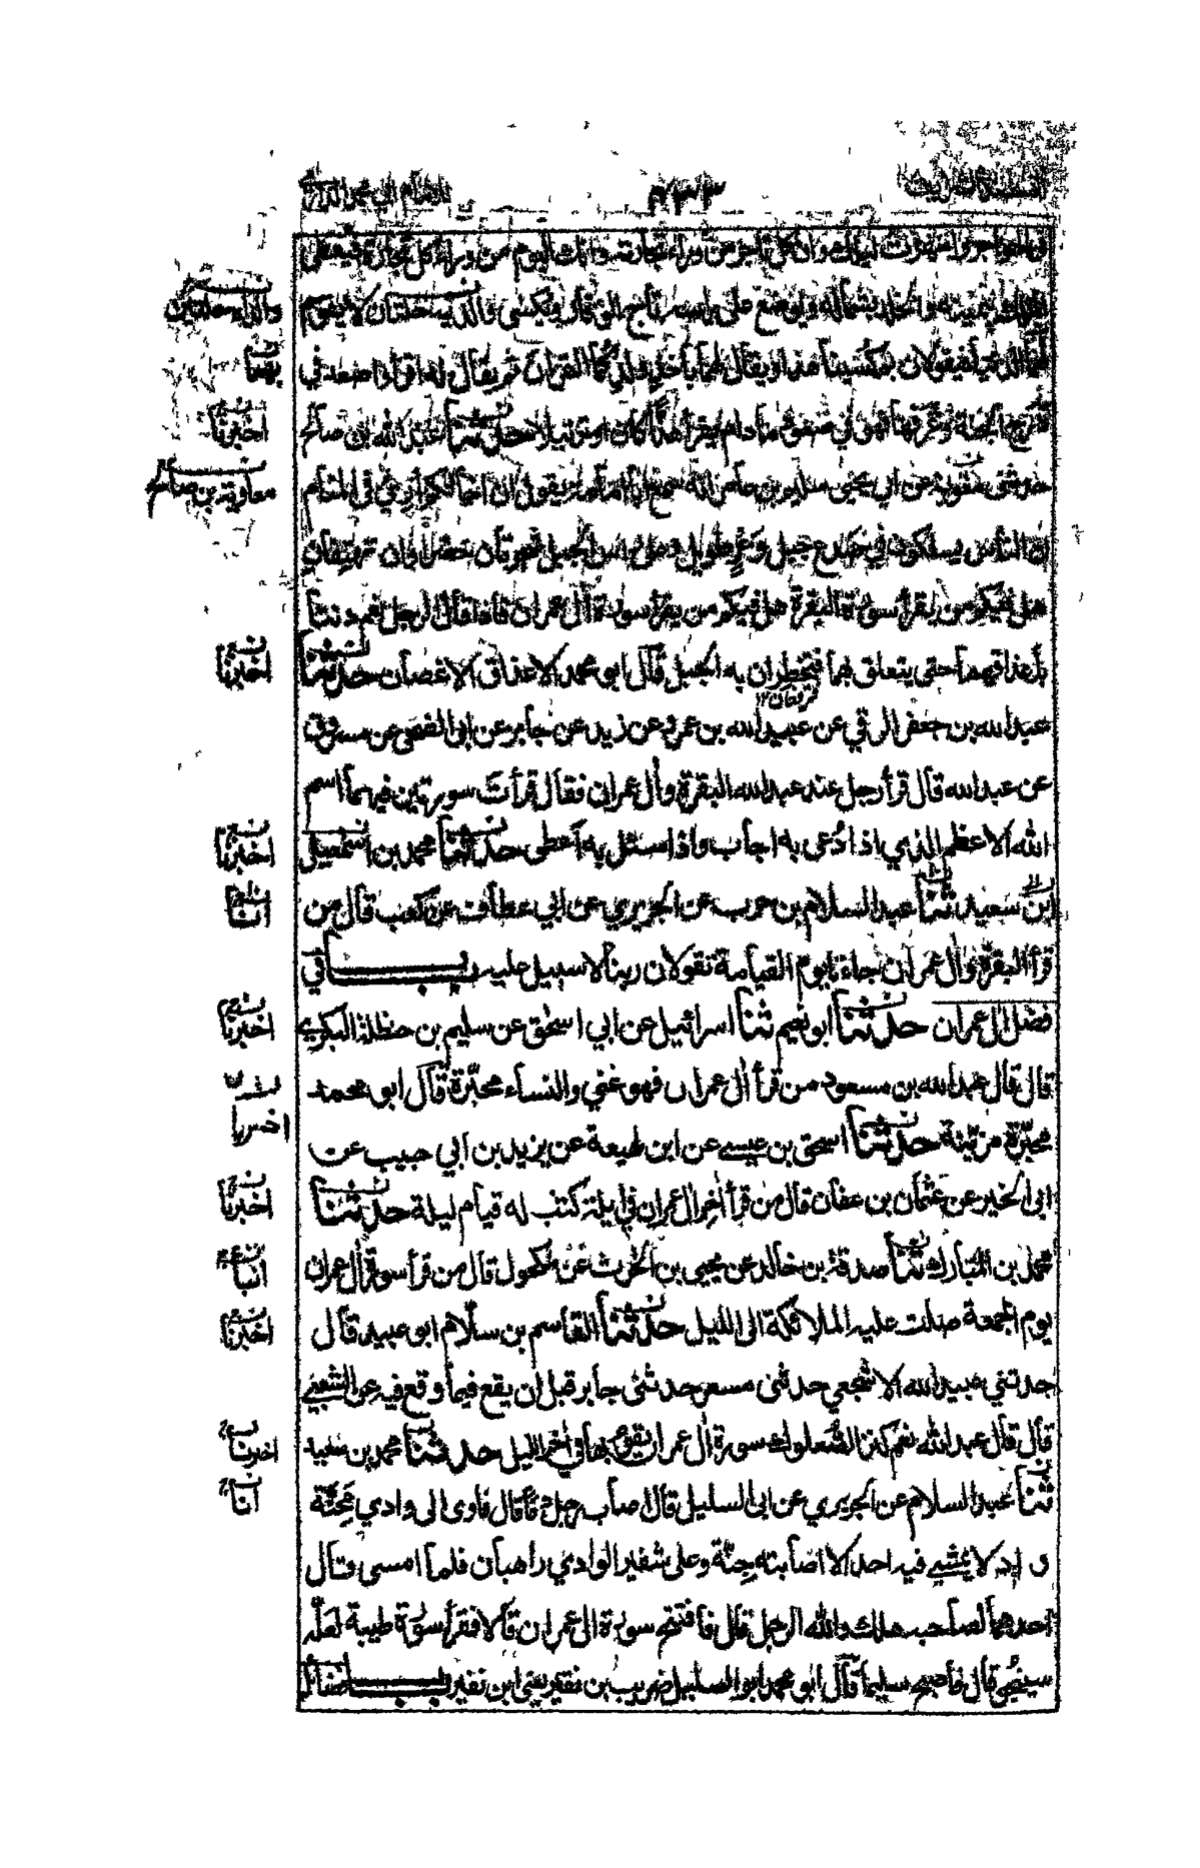 للامام ابي محمد الدارمي
٤٣٣
الهواجر واسهرت ليلك وان كل تاجر من وراء تجارته وانك اليوم من وراء كل تجارة فيعطى
الملك بيمينه والخلد بشماله ويوضع على راسه تاج الوقار ويكسى والديه حلتان لا يقوم
والداه حلتين
لهما الدنيا فيقولان بم كسينا هذا ويقال لهما باخذ ولدكما القران ثم يقال له اقرأ واصعد في
درج الجنة وغرفها فهو في صعود ما دام يقرأ هذا كان او ترتيلا حدثنا عبد الله بن صالح
اخبرنا
حدثني معوية عن ابي يحيى سليم بن عامر انه سمع ابا امامة يقول ان اخا لكم اري في المنام
معاوية بن صالح
ان الناس يسلكون في صدع جبل وعر طويل وعلى راس الجبل شجرتان خضراوان تهتفان
هل فيكم من يقرأ سورة البقرة هل فيكم من يقرأ سورة آل عمران فاذا قال الرجل نعم دنتا
باعذاقهما حتى يتعلق بهما فتخطران به الجبل قال ابو محمد الاعذاق الاغصان حدثنا
اخبرنا
عبد الله بن جعفر الرقي عن عبيد الله بن عمرو عن زيد عن جابر عن ابي الضحى عن مسروق
عن عبد الله قال قرأ رجل عند عبد الله البقرة وآل عمران فقال قرأت سورتين فيهما اسم
الله الاعظم الذي اذا دعى به اجاب واذا سئل به اعطى حدثنا محمد بن اسمعيل
اخبرنا
ابن سعيد ثنا عبد السلام بن حرب عن الجريري عن ابي عطاف عن كعب قال من
انا
قرأ البقرة وآل عمران جاءتا يوم القيامة تقولان ربنا لا سبيل عليه باب في
فضل آل عمران حدثنا ابو نعيم ثنا اسرائيل عن ابي اسحق عن سليم بن حنظلة البكري
اخبرنا
قال قال عبد الله بن مسعود من قرأ آل عمران فهو غني والنساء محبرة قال ابو محمد
محبرة مزينة حدثنا اسحق بن عيسى عن ابن لهيعة عن يزيد بن ابي حبيب عن
اخبرنا
ابي الخير عن عثمان بن عفان قال من قرأ آخر آل عمران في ليلة كتب له قيام ليلة حدثنا
اخبرنا
محمد بن المبارك ثنا صدقة بن خالد عن يحيى بن الحرث عن مكحول قال من قرأ سورة آل عمران
انبا
يوم الجمعة صلت عليه الملائكة الى الليل حدثنا القاسم بن سلام ابو عبيد قال
اخبرنا
حدثني عبيد الله الاشجعي حدثني مسعر حدثني جابر قبل ان يقع فيما وقع فيه عن الشعبي
قال قال عبد الله نعم كنز الصعلوك سورة آل عمران يقوم بها في آخر الليل حدثنا محمد بن سعيد
اخبرنا
ثنا عبد السلام عن الجريري عن ابي السليل قال اصاب رجل دما قال فاوى الى وادي مجنة
انا
واد لا يمشي فيه احد الا اصابته جنة وعلى شفير الوادي راهبان فلما امسى قال
احدهما لصاحبه هلك والله الرجل قال فافتتح سورة آل عمران قالا فقرأ سورة طيبة لعله
سينجو قال فاصبح سليما قال ابو محمد ابو السليل ضريب بن نقير يعني ابن نفير باب فضائل